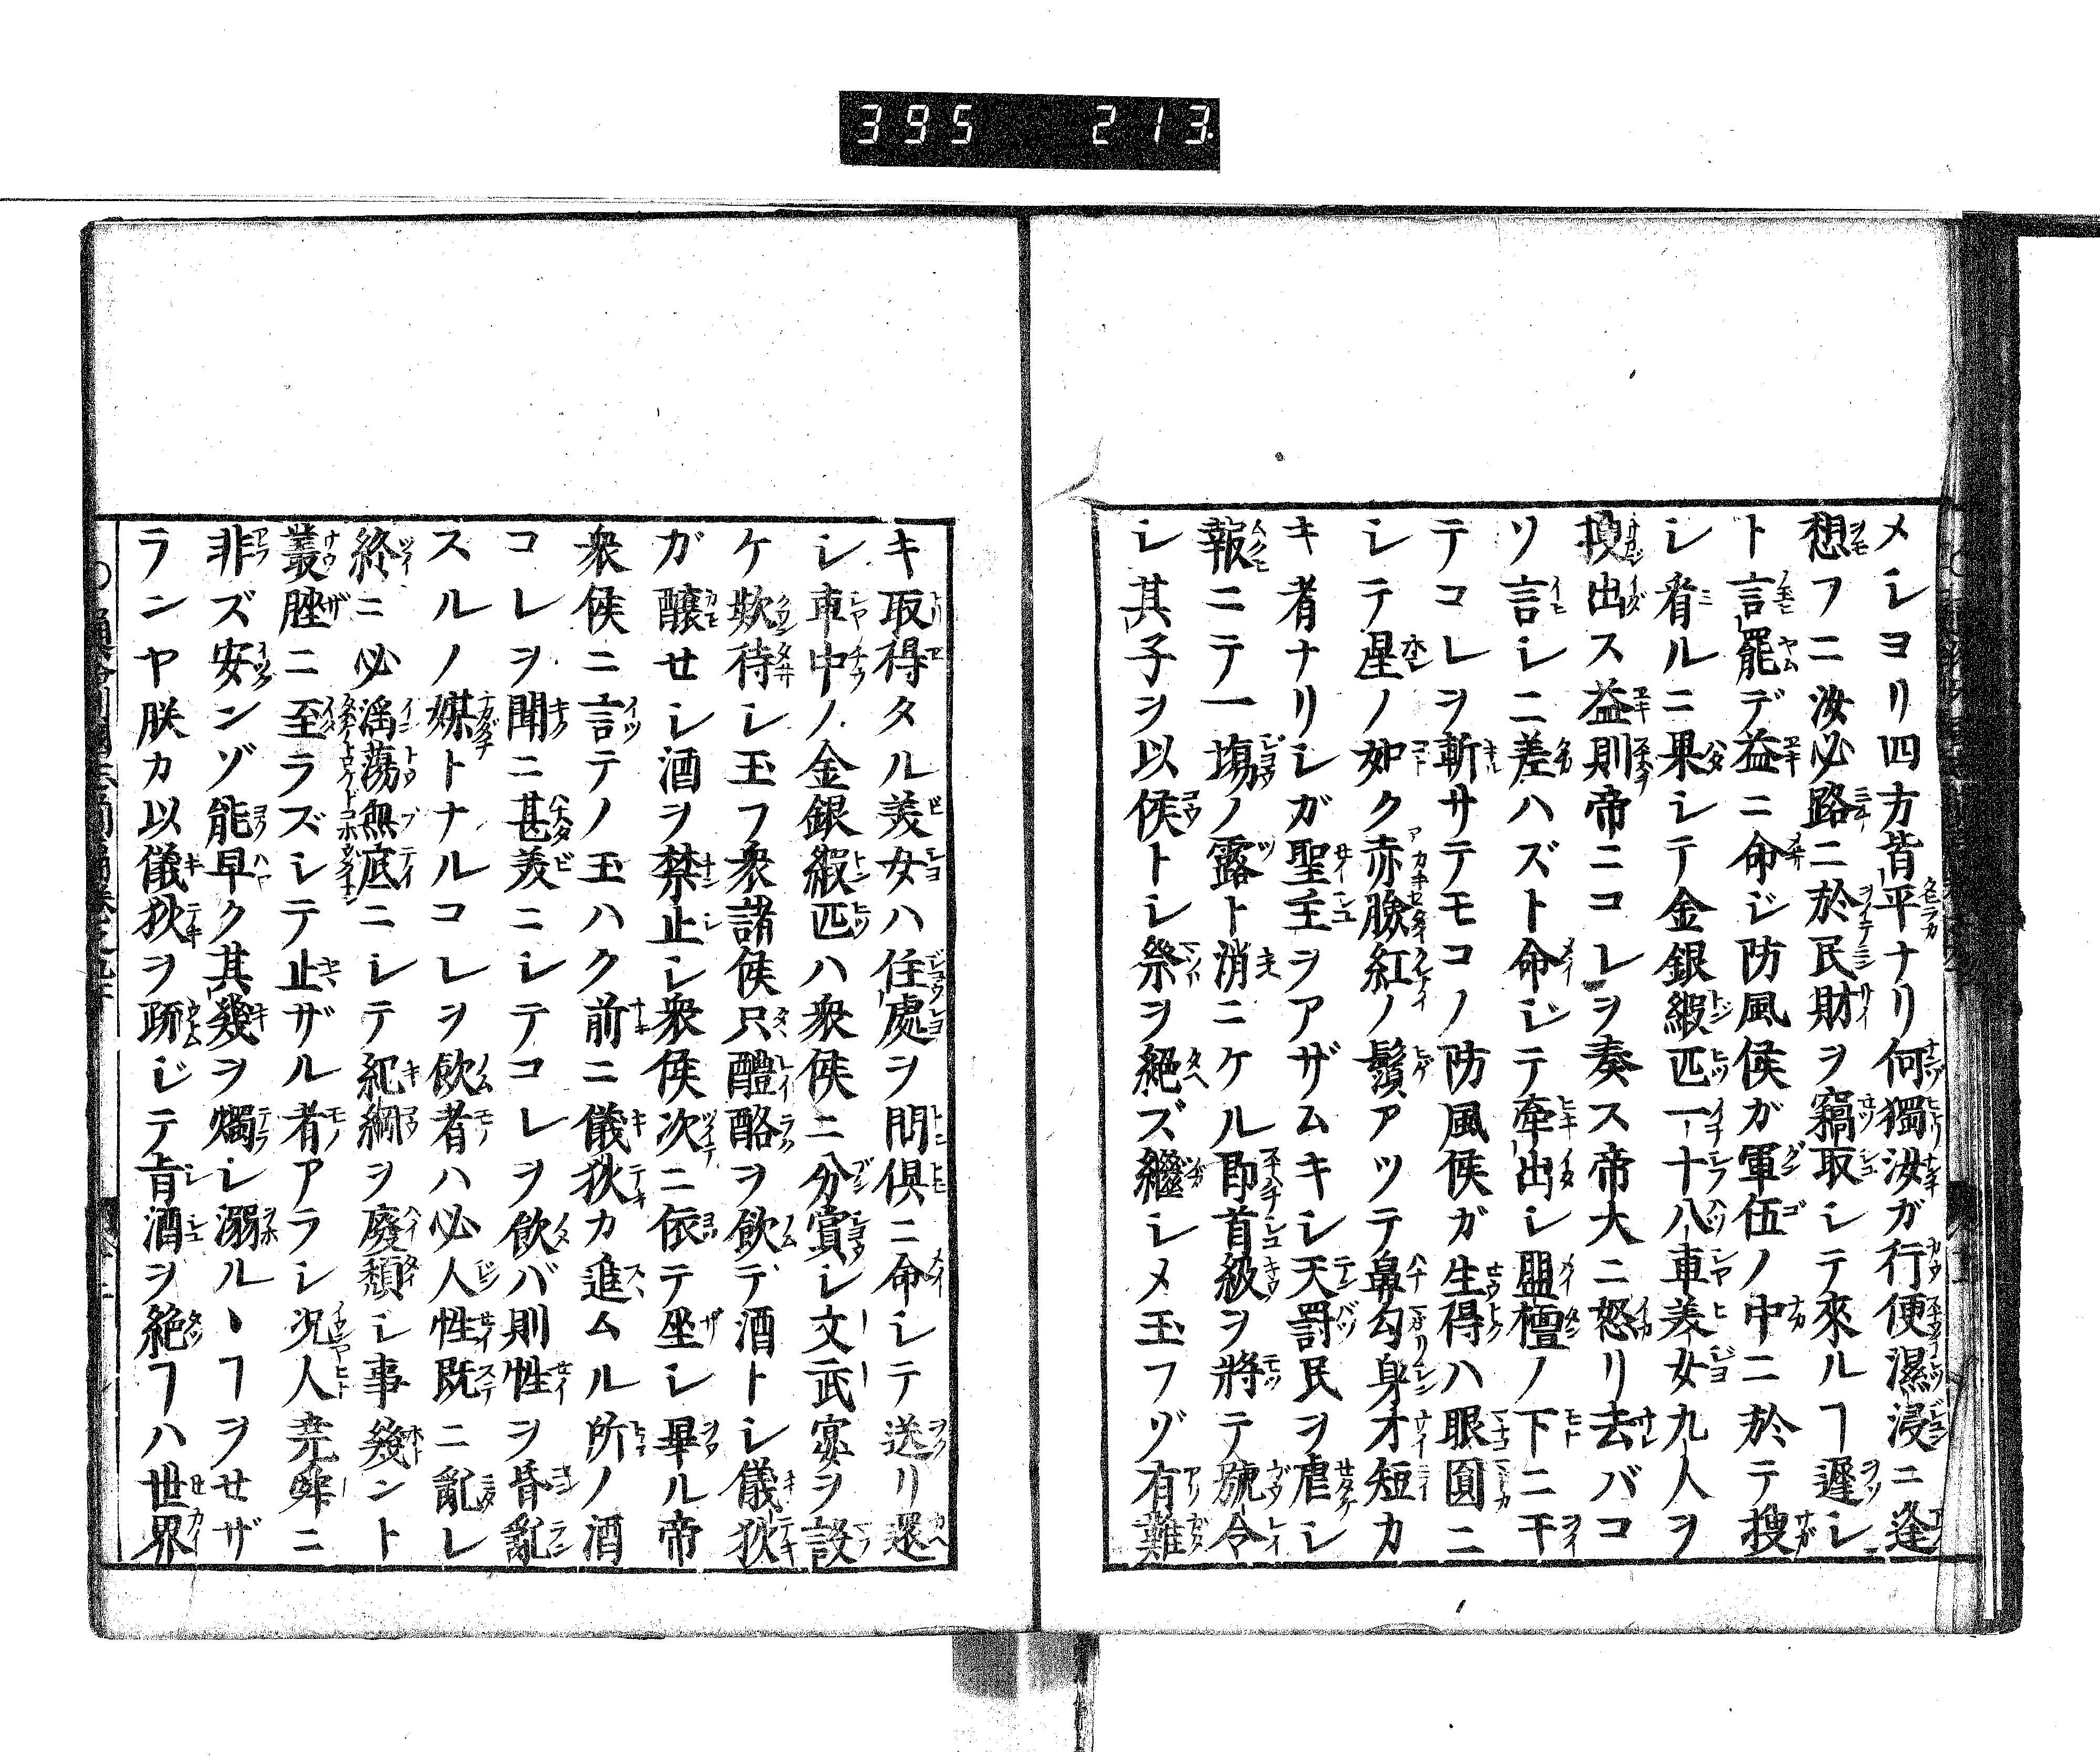 395 213
メシヨリ四方皆平ナリ何獨汝ガ行便濕浸ニ逢
想フニ汝必路ニ於民財ヲ竊取シテ來ルヿ遲シ
ト言罷デ益ニ命ジ防風侯ガ軍伍ノ中ニ於テ搜
シ看ルニ果シテ金銀緞匹一十八車美女九人ヲ
搜出ス益則帝ニコレヲ奏ス帝大ニ怒リ去バコ
ソ言シニ差ハズト命ジテ牽出シ盟檀ノ下ニ于
テコレヲ斬サテモコノ防風侯ガ生得ハ眼圓ニ
シテ星ノ如ク赤臉紅ノ鬚アツテ鼻勾身才短カ
キ者ナリシガ聖主ヲアザムキシ天罰民ヲ虐シ
報ニテ一塲ノ露ト消ニケル即首級ヲ將テ號令
シ其子ヲ以侯トシ祭ヲ絕ズ繼シメ玉フゾ有難
キ取得タル美女ハ住處ヲ問倶ニ命シテ送リ還
シ車中ノ金銀緞匹ハ衆侯ニ分賞シ文武宴ヲ設
ケ欵待シ玉フ衆諸侯只醴酪ヲ飮デ酒トシ儀狄
ガ釀セシ酒ヲ禁止シ衆侯次ニ依テ坐シ畢ル帝
衆侯ニ言テノ玉ハク前ニ儀狄カ進ムル所ノ酒
コレヲ聞ニ甚美ニシテコレヲ飮バ則性ヲ昏亂
スルノ媒トナルコレヲ飮者ハ必人性既ニ亂レ
終ニ必滛蕩無底ニシテ紀綱ヲ廢頽シ事發ント
叢脞ニ至ラズシテ止ザル者アラシ况人堯舜ニ
非ズ安ンゾ能早ク其幾ヲ燭シ溺ルヽヿヲせザ
ランヤ朕カ以儀狄ヲ疏ジテ旨酒ヲ絕ヿハ世界